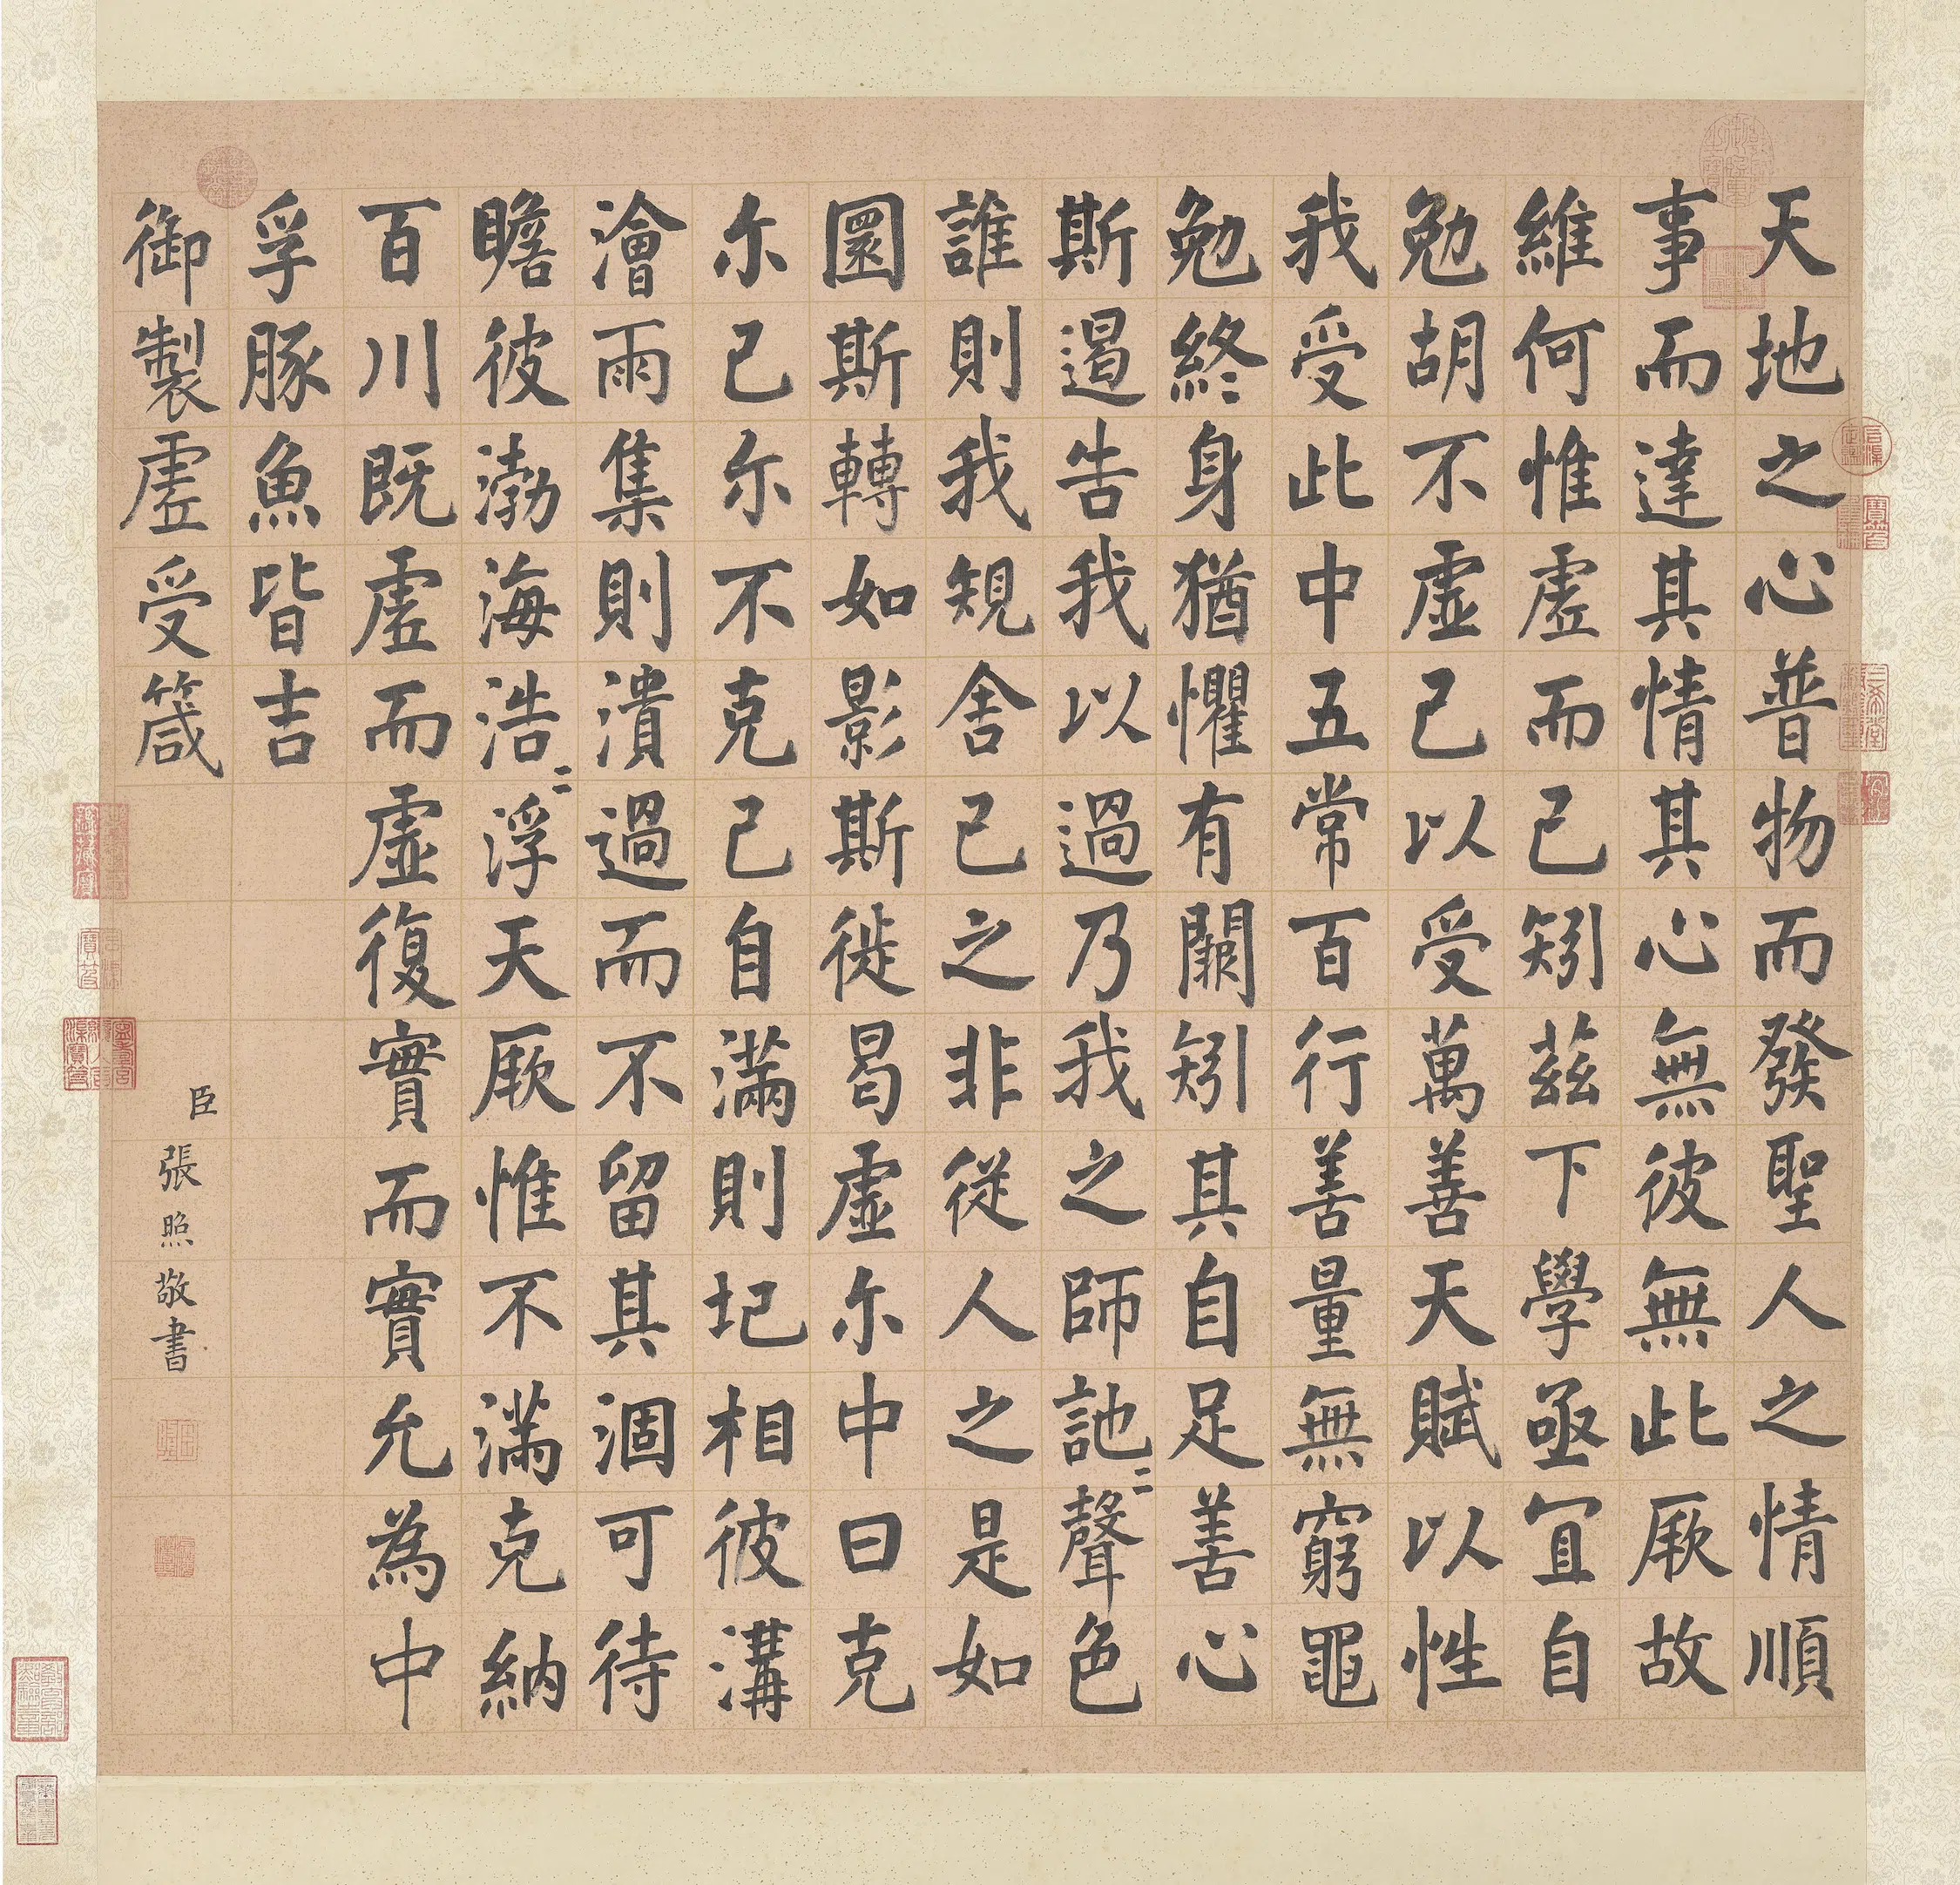 天地之心普物而發聖人之情順
事而達其情其心無彼無此厥故
維何惟虛而已矧茲下學亟宜自
勉胡不虛己以受萬善天賦以性
我受此中五常百行善量無窮黽
勉終〻身猶懼有闕矧其自足善心
斯遏告我以過乃我之師訑〻聲色
誰則我規舍己之非從人之是如
圜斯轉如影斯徙曷虛尔中曰克
尔己尔不克己自滿則圮相彼溝
澮雨集則潰過而不留其涸可待
瞻彼渤海浩〻浮天厥惟不滿克納
百川既虛而虛復實而實允為中
孚豚魚皆吉
御製虛受箴
臣張照敬書